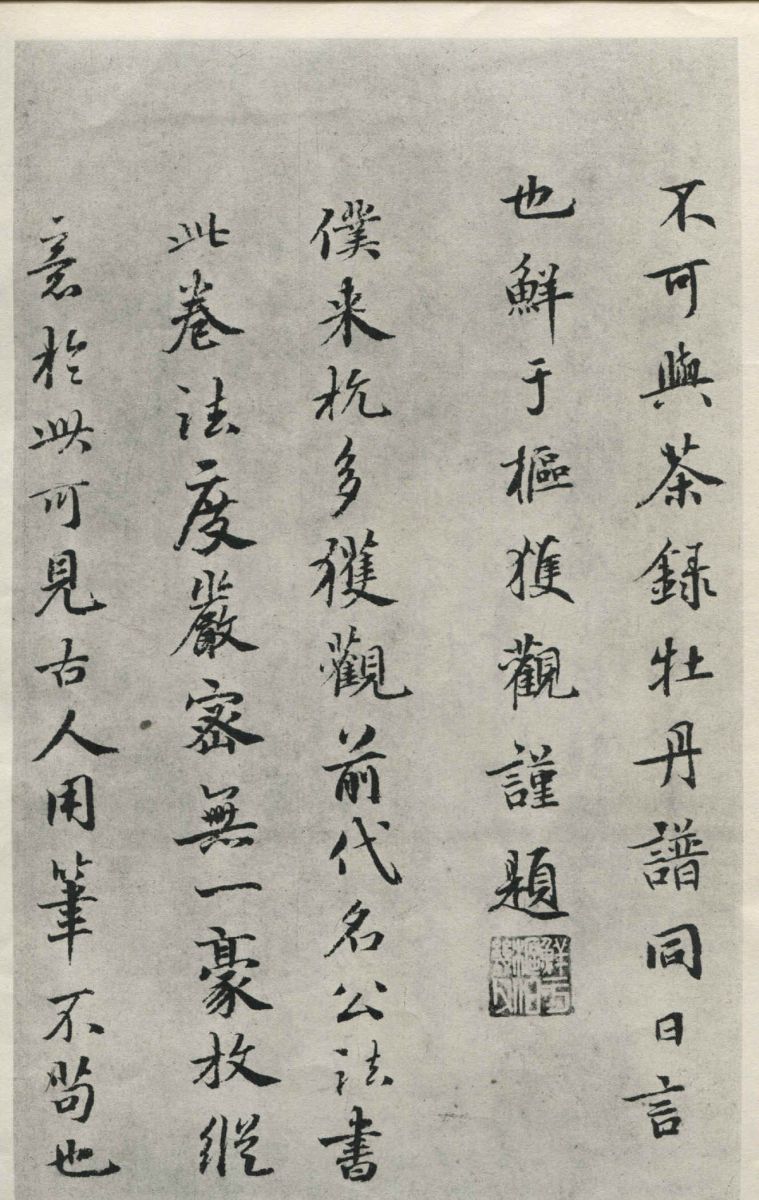 不可與茶録牡丹譜同日言
也鮮于樞獲觀謹題
僕来杭多獲觀前代名公法書
此卷法度嚴密無一豪放縱
意於此可見古人用筆不苟也